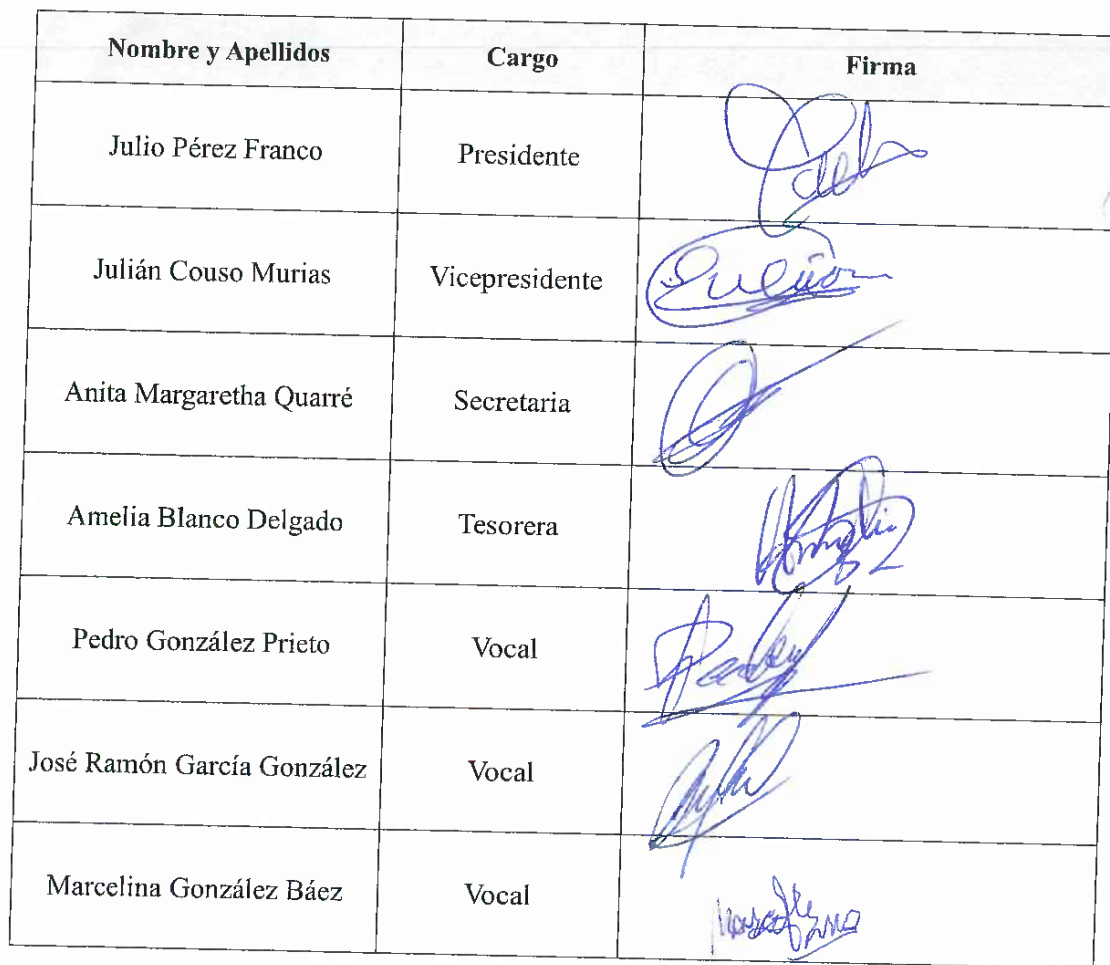 Nombre y Apellidos Cargo Firma
Julio Pérez Franco Presidente
Julián Couso Murias Vicepresidente Julián
Anita Margaretha Quarré Secretaria
Amelia Blanco Delgado Tesorera Amelia
Pedro González Prieto Vocal
José Ramón García González Vocal
Marcelina González Báez Vocal